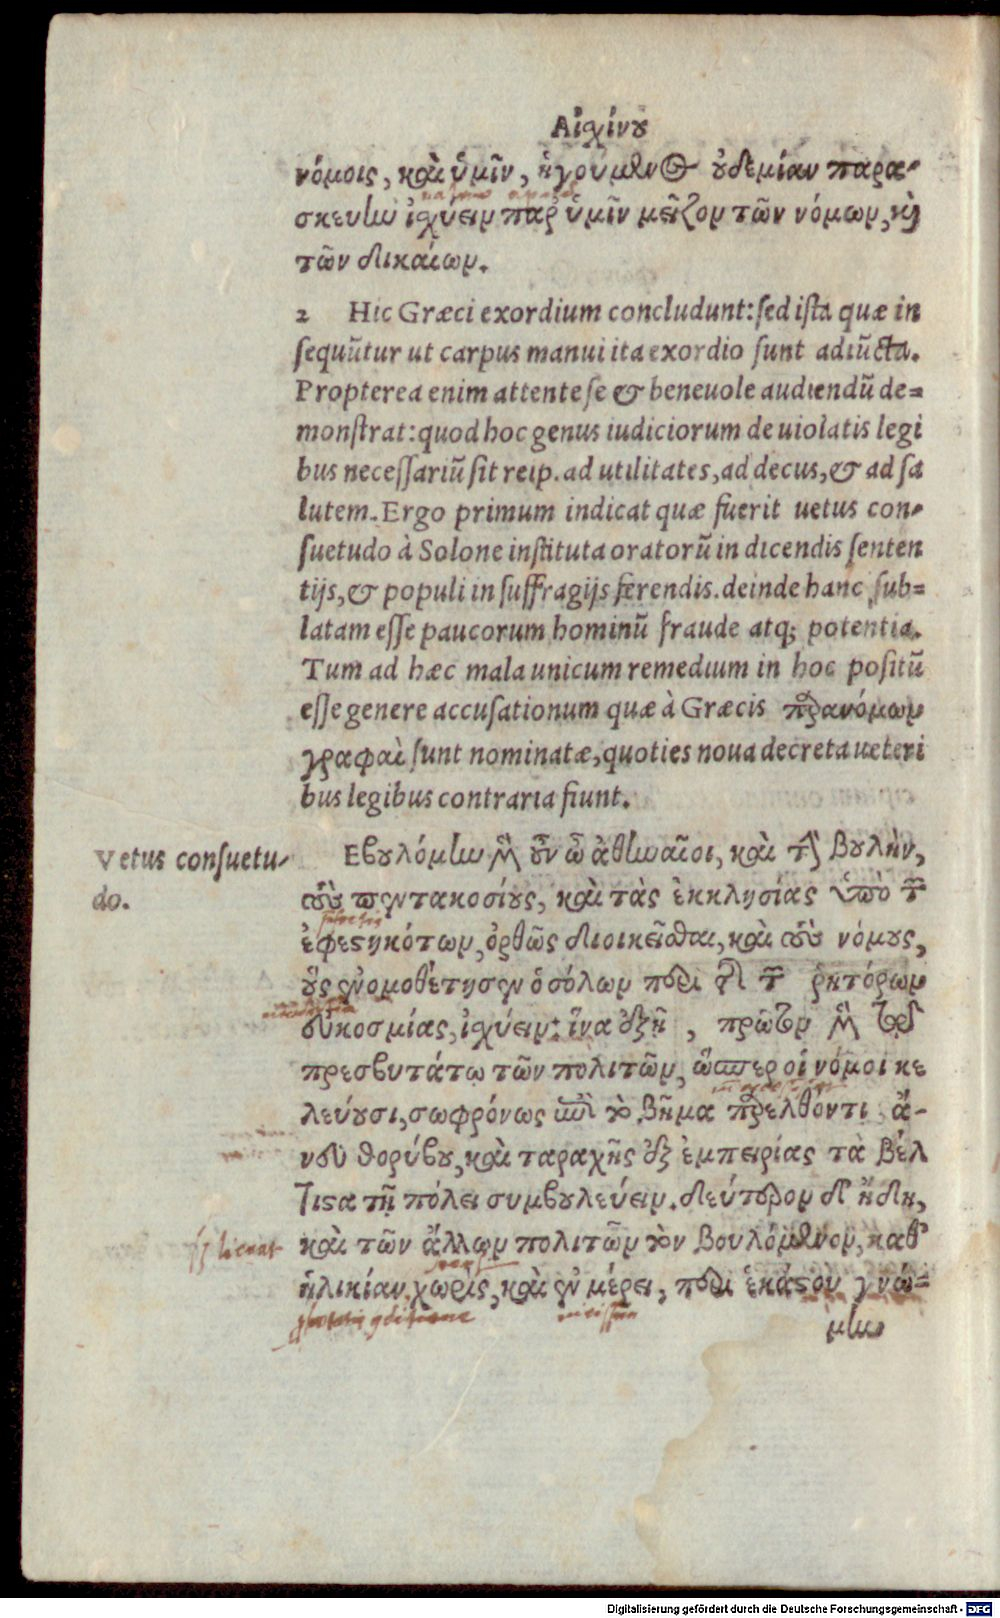 Αἰσχίνου
νόμοις, καὶ ὑμῖν, ἡγούμενος οὐδεμίαν παρα-
σκευὴν ἰσχύειν παρ' ὑμῖν μεῖζον τῶν νόμων, καὶ
τῶν δικαίων.
2 Hic Græci exordium concludunt: sed ista quæ in
sequūtur ut carpus manui ita exordio sunt adiūcta.
Propterea enim attente se & beneuole audiendū de=
monstrat: quod hoc genus iudiciorum de uiolatis legi
bus necessariū sit reip. ad utilitates, ad decus, & ad sa
lutem. Ergo primum indicat quæ fuerit uetus con-
suetudo à Solone instituta oratorū in dicendis senten
tijs, & populi in suffragijs ferendis. deinde hanc sub=
latam esse paucorum hominū fraude atq; potentia.
Tum ad hæc mala unicum remedium in hoc positū
esse genere accusationum quæ à Græcis παρανόμων
γραφαὶ sunt nominatæ, quoties noua decreta ueteri
bus legibus contraria fiunt.
Vetus consuetu-
do.
Εβουλόμην μὲν οὖν ὦ ἀθηναῖοι, καὶ τὴν βουλὴν,
τοὺς πεντακοσίους, καὶ τὰς ἐκκλησίας ὑπὸ τῶν
ἐφεστηκότων, ὀρθῶς διοικεῖσθαι, καὶ τοὺς νόμους,
οὓς ἐνομοθέτησεν ὁ σόλων περὶ τῆς τῶν ῥητόρων
εὐκοσμίας, ἰσχύειν: ἵνα ἐξῆ, πρῶτον μὲν τῷ
πρεσβυτάτῳ τῶν πολιτῶν, ὥσπερ οἱ νόμοι κε
λεύουσι, σωφρόνως ἐπὶ τὸ βῆμα παρελθόντι ἄ-
νευ θορύβου, καὶ ταραχῆς ἐξ ἐμπειρίας τὰ βέλ
τιστα τῇ πόλει συμβουλεύειν. δεύτερον δ' ἤδη,
καὶ τῶν ἄλλων πολιτῶν τὸν βουλόμενον, καθ'
ἡλικίαν χωρὶς, καὶ ἐν μέρει, περὶ ἑκάστου γνώ=
μην
Digitalisierung gefördert durch die Deutsche Forschungsgemeinschaft - DFG